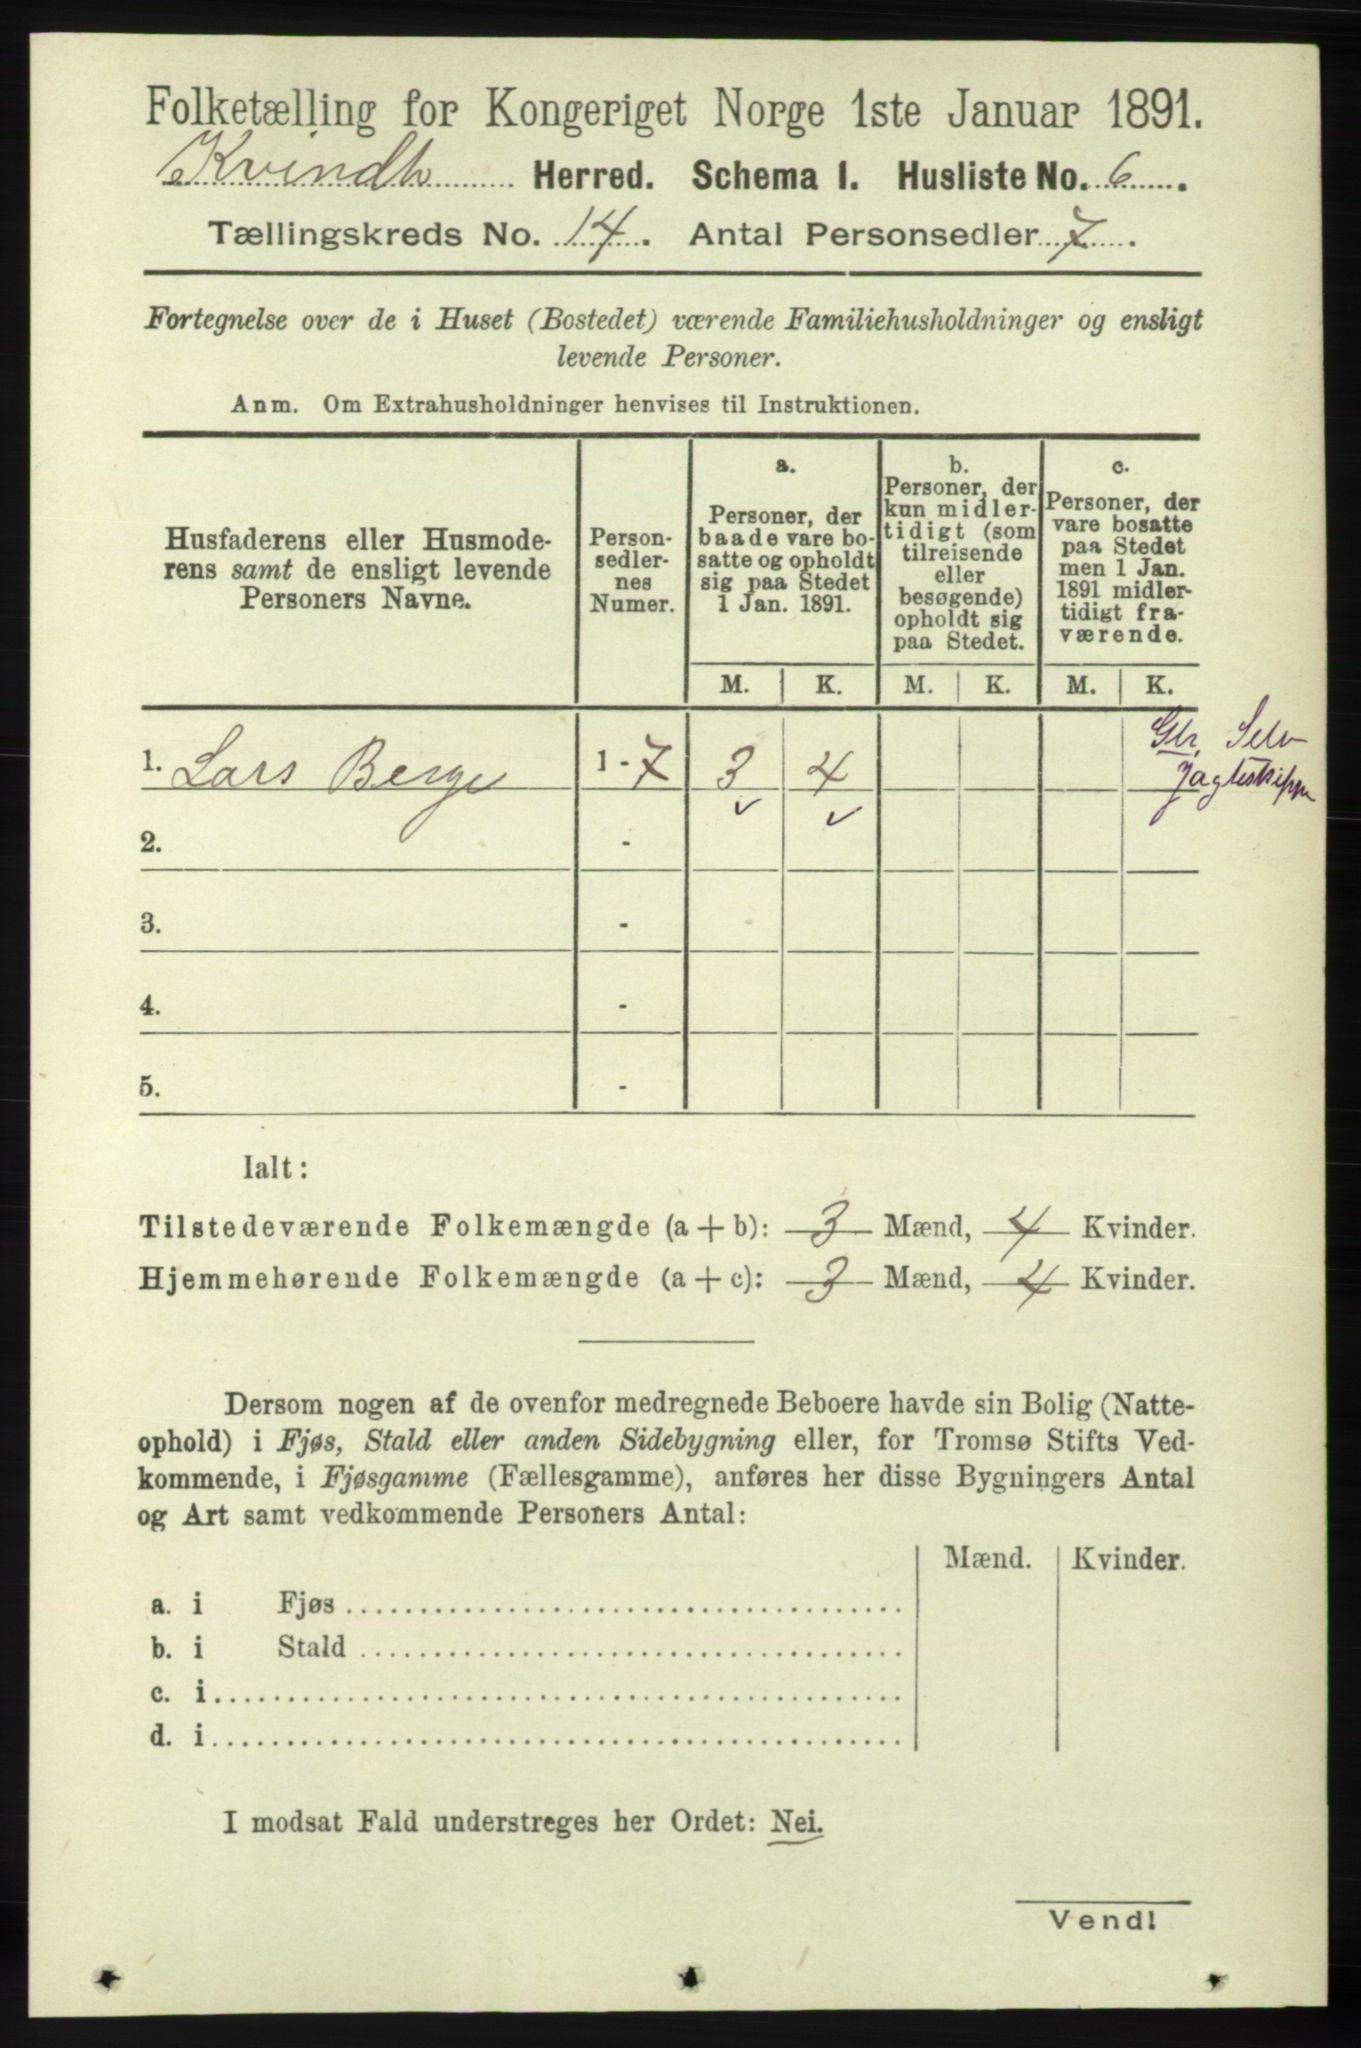 Folketælling for Kongeriget Norge 1ste Januar 1891.
Kvindh Herred. Schema I. Husliste No. 6.
Tællingskreds No. 14. Antal Personsedler 7.
Fortegnelse over de i Huset (Bostedet) værende Familiehusholdninger og ensligt
levende Personer.
Anm. Om Extrahusholdninger henvises til Instruktionen.
Husfaderens eller Husmode-
rens samt de ensligt levende
Personers Navne.
Person-
sedler-
nes
Numer.
a.
Personer, der
baade vare bo-
satte og opholdt
sig paa Stedet
1 Jan. 1891.
b.
Personer, der
kun midler-
tidigt (som
tilreisende
eller
besøgende)
opholdt sig
paa Stedet.
c.
Personer, der
vare bosatte
paa Stedet
men 1 Jan.
1891 midler-
tidigt fra-
værende.
M. K. M. K. M. K.
1. Lars Berge 1 - 7 3 4
Gbr. Selv
Jagteskipper
2. -
3. -
4. -
5. -
Ialt:
Tilstedeværende Folkemængde (a + b): 3 Mænd, 4 Kvinder.
Hjemmehørende Folkemængde (a + c): 3 Mænd, 4 Kvinder.
Dersom nogen af de ovenfor medregnede Beboere havde sin Bolig (Natte-
ophold) i Fjøs, Stald eller anden Sidebygning eller, for Tromsø Stifts Ved-
kommende, i Fjøsgamme (Fællesgamme), anføres her disse Bygningers Antal
og Art samt vedkommende Personers Antal:
Mænd. Kvinder.
a. i Fjøs
b. i Stald
c. i
d. i
I modsat Fald understreges her Ordet: Nei.
Vend!